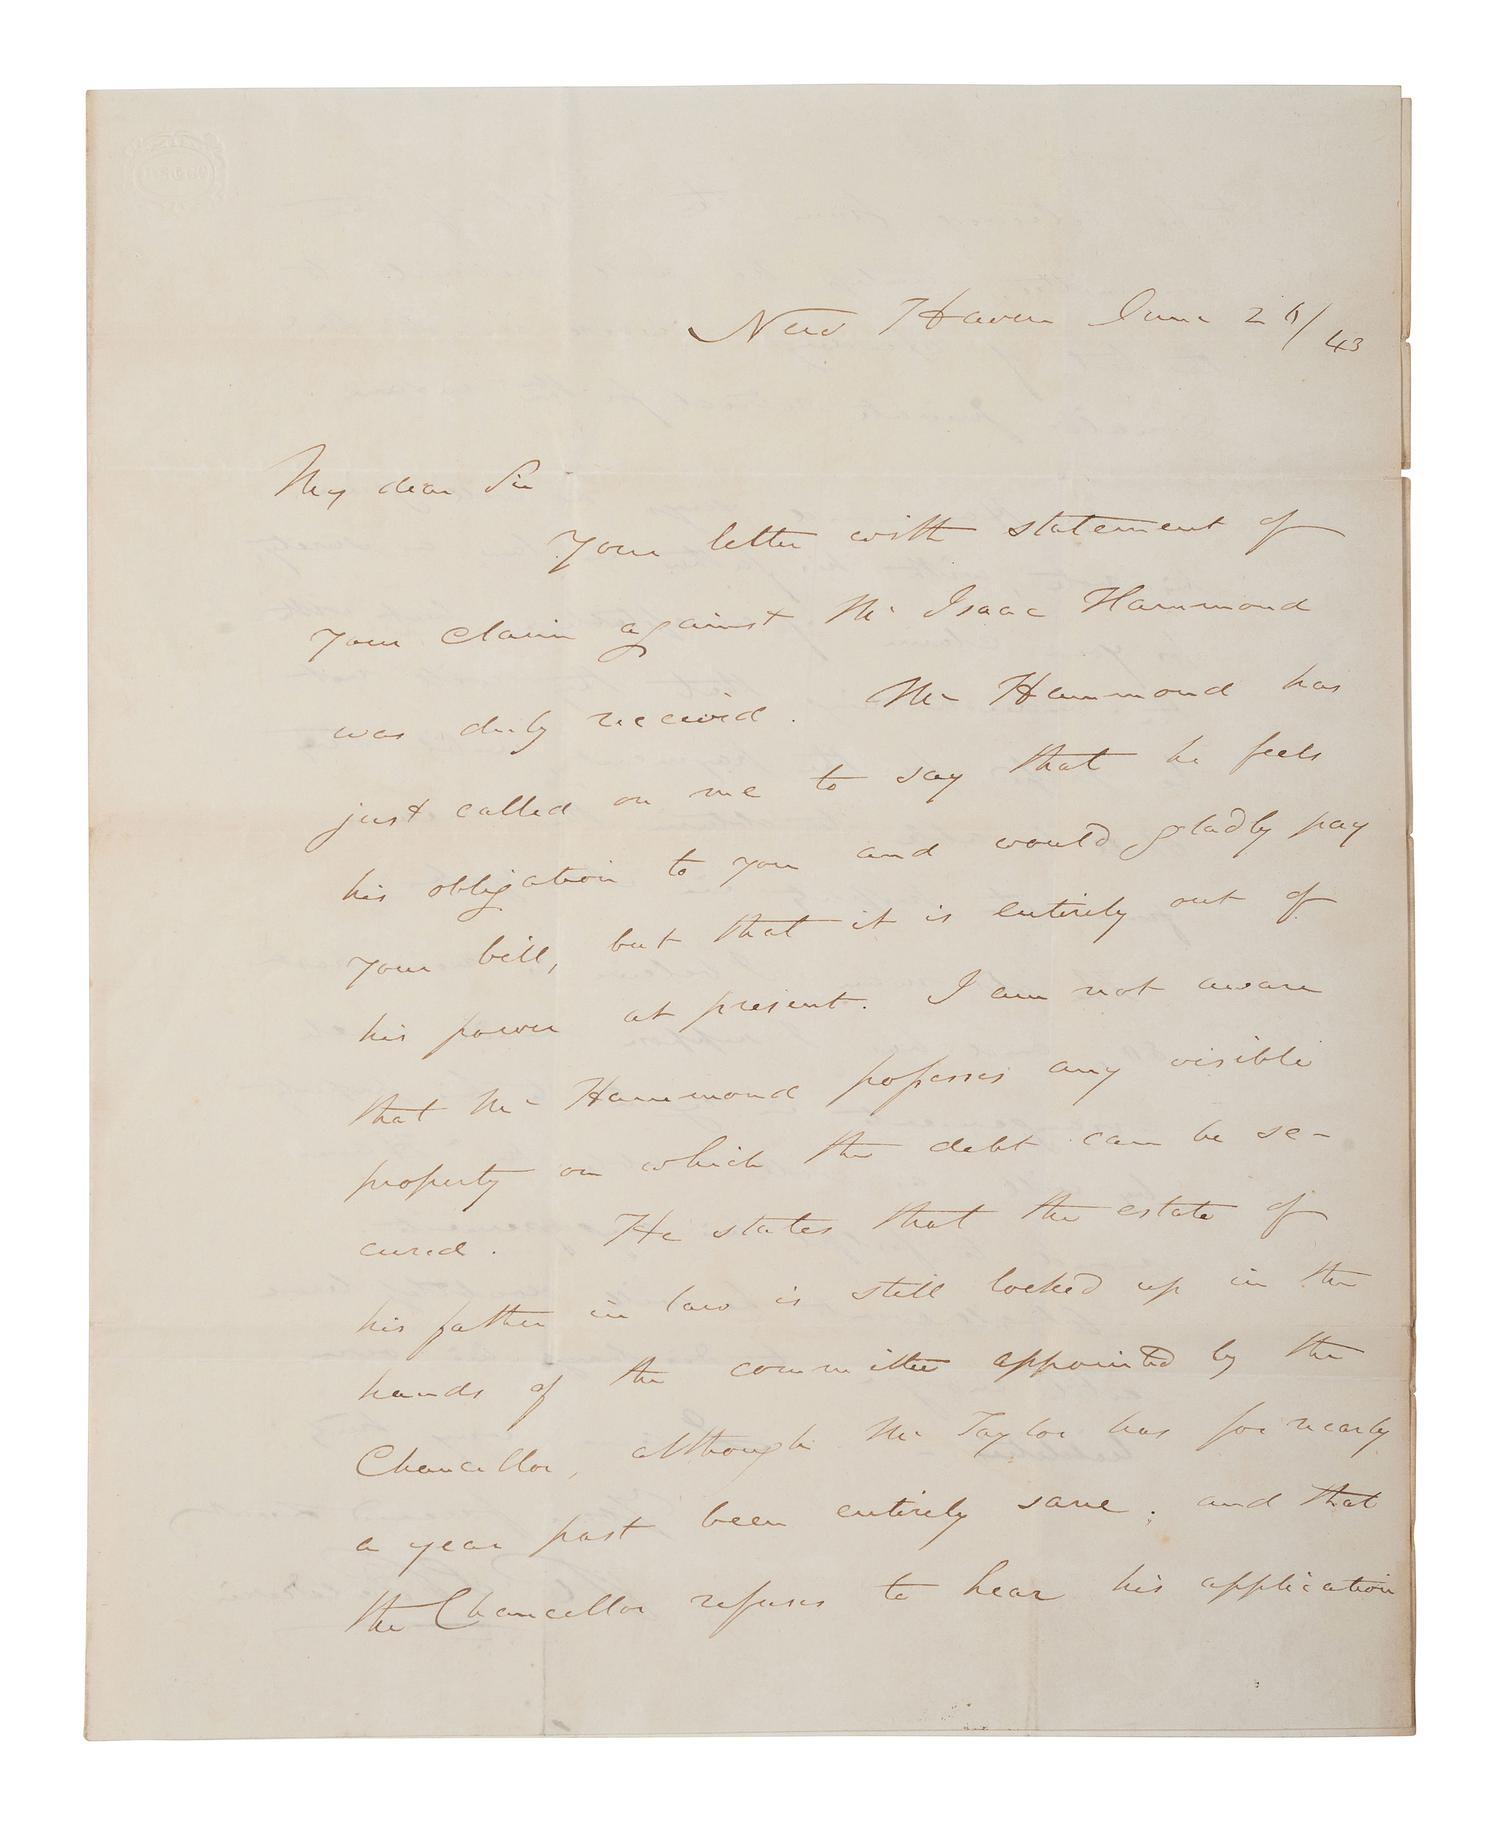 New Haven June 26/43
My dear Sir
Your letter with statement of
your claim against Mr Isaac Hammond
was duly received. Mr Hammond has
just called on me to say that he feels
his obligation to you and would gladly pay
your bill, but that it is entirely out of
his power at present. I am not aware
that Mr Hammond posesses any visible
property on which the debt can be se-
cured. He states that the estate of
his father in law is still locked up in the
hands of the committee appointed by the
Chancellor, although Mr Taylor has for nearly
a year past been entirely sane; and that
the Chancellor refuses to hear his application